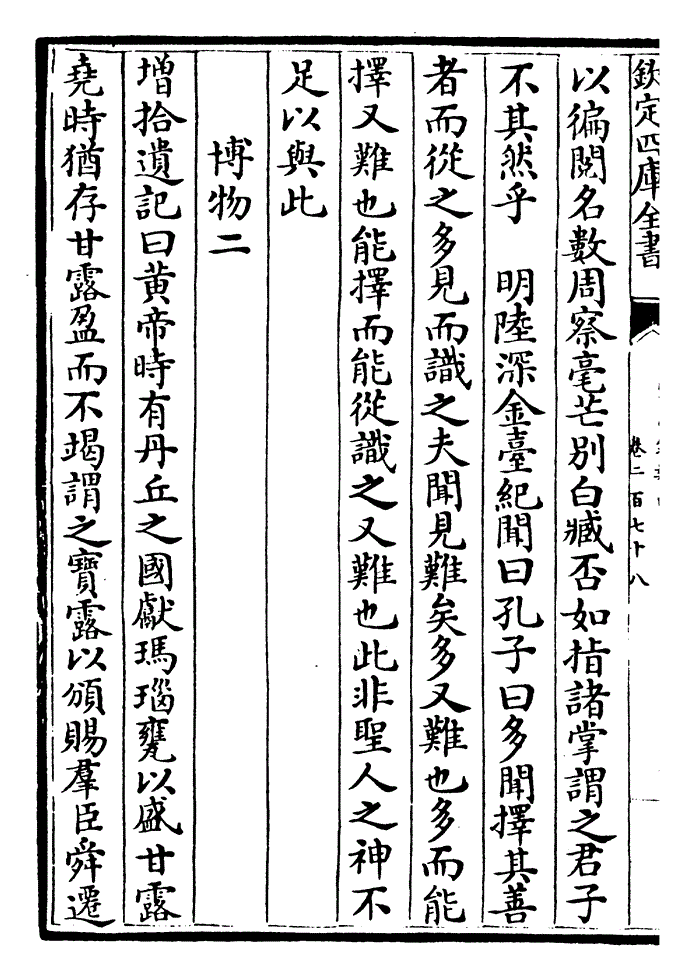 欽定四庫全書
卷二百七十八
以徧閱名數周察毫芒别白臧否如指諸掌謂之君子
不其然乎　明陸深金臺紀聞曰孔子曰多聞擇其善
者而從之多見而識之夫聞見難矣多又難也多而能
擇又難也能擇而能從識之又難也此非聖人之神不
足以與此
博物二
增拾遺記曰黄帝時有丹丘之國獻瑪瑙甕以盛甘露
堯時猶存甘露盈而不竭謂之寶露以頒賜羣臣舜遷